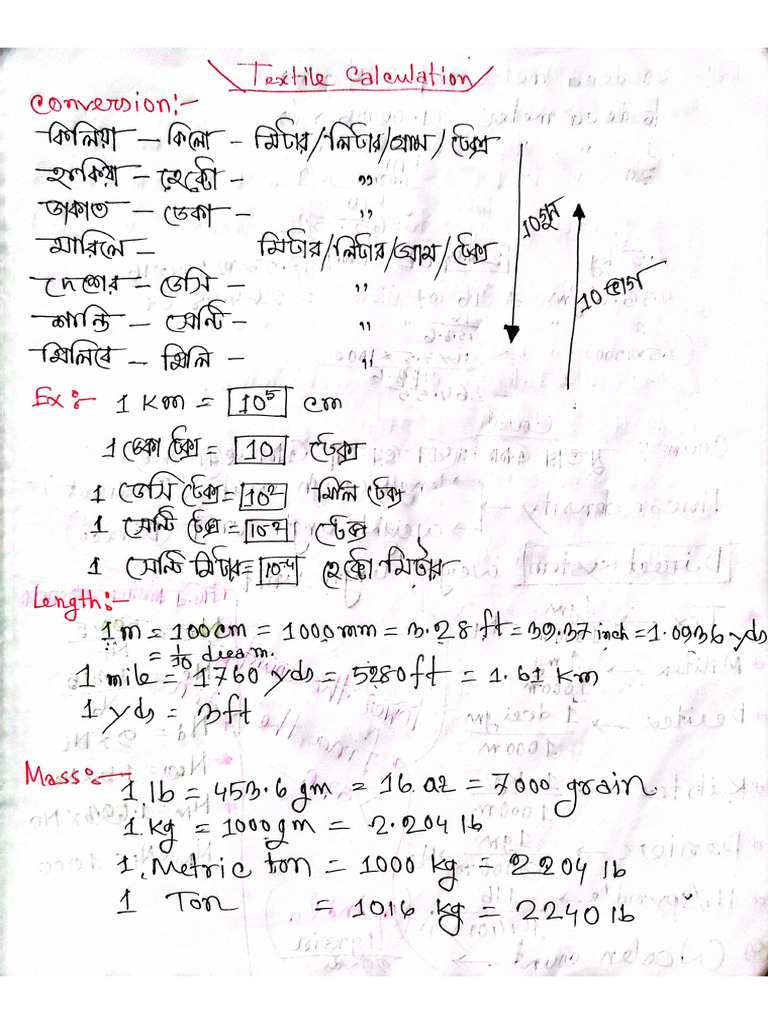 Textile Calculation
Conversion:-
কিলিয়া – কিলো – মিটার/লিটার/গ্রাম/টেক্স
হাকিয়া – হেক্টো – "
ডাকাত – ডেকা – "
মারিলে – মিটার/লিটার/গ্রাম/টেক্স
দেশের – ডেসি – "
শান্তি – সেন্টি – "
মিলিবে – মিলি – "
10 গুন
10 ভাগ
Ex:- 1 Km = 10⁵ cm
1 ডেকা টেক্স = 10 টেক্স
1 ডেসি টেক্স = 10² মিলি টেক্স
1 সেন্টি টেক্স = 10⁻² টেক্স
1 সেন্টি মিটার = 10⁻⁴ হেক্টো মিটার
Length:-
1m = 100cm = 1000mm = 3.28ft = 39.37 inch = 1.0936 yds
= 1/10 decam.
1 mile = 1760 yds = 5280ft = 1.61 Km
1 yds = 3ft
Mass:-
1 lb = 453.6 gm = 16 oz = 7000 grain
1 kg = 1000gm = 2.204 lb
1 Metric ton = 1000 kg = 2204 lb
1 Ton = 1016 kg = 2240 lb